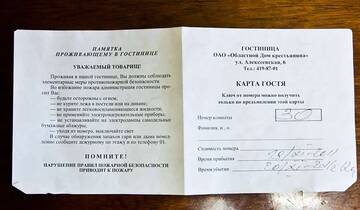 ПАМЯТКА
ПРОЖИВАЮЩЕМУ В ГОСТИНИЦЕ
УВАЖАЕМЫЙ ТОВАРИЩ!
Проживая в нашей гостинице, Вы должны соблюдать
элементарные меры противопожарной безопасности.
Во избежание пожара администрация гостиницы про-
сит Вас:
— будьте осторожны с огнем,
— не курите лежа в постели или на диване;
— не храните легковоспламеняющиеся жидкости;
— не применяйте электронагревательные приборы;
— не устанавливайте на электролампы самодельные
бумажные абажуры;
— уходя из номера, выключайте свет
В случае обнаружения запаха гари или дыма немед-
ленно сообщите дежурному по этажу и по телефону 01.
ПОМНИТЕ!
НАРУШЕНИЕ ПРАВИЛ ПОЖАРНОЙ БЕЗОПАСНОСТИ
ПРИВОДИТ К ПОЖАРУ
ГОСТИНИЦА
ОАО «Областной Дом крестьянина»
ул. Алексеевская, 6
Тел.: 419-87-01
КАРТА ГОСТЯ
Ключ от номера можно получить
только по предъявлении этой карты
Номер комнаты 30
Фамилия, и.о.
Стоимость номера
Время прибытия
Время убытия